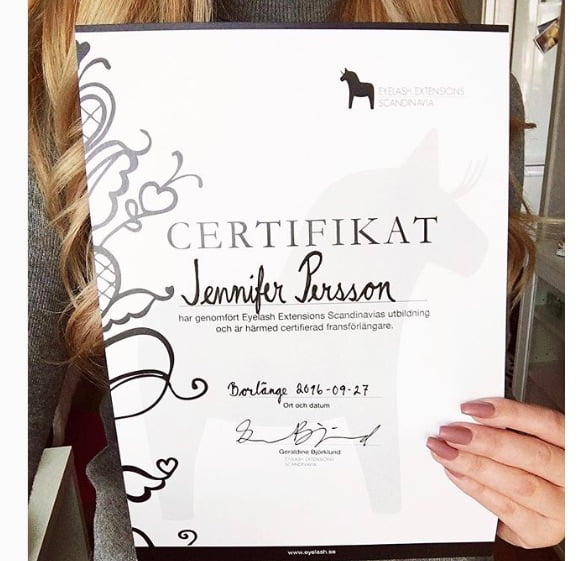 EYELASH EXTENSIONS
SCANDINAVIA
CERTIFIKAT
Jennifer Persson
har genomfört Eyelash Extensions Scandinavias utbildning
och är härmed certifierad fransförlängare.
Borlänge 2016-09-27
Ort och datum
Geraldine Björklund
EYELASH EXTENSIONS
SCANDINAVIA
www.eyelash.se